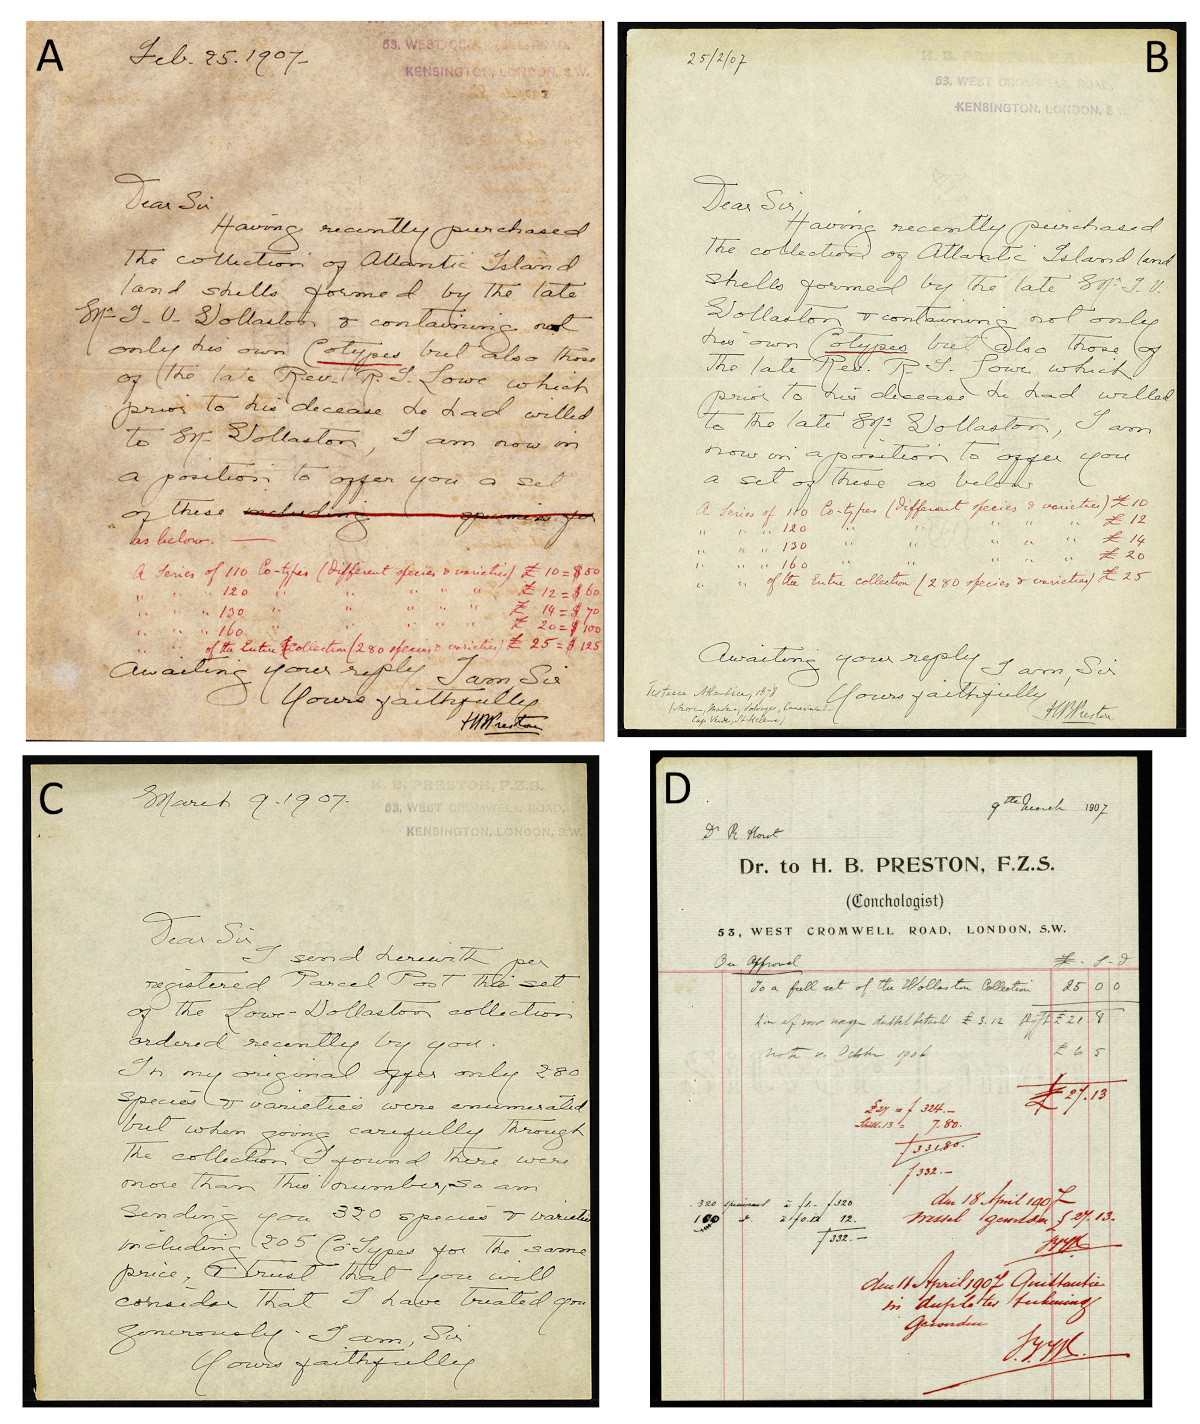 A
Feb. 25. 1907
53, WEST CROMWELL ROAD,
KENSINGTON, LONDON, S.W.
Dear Sir
Having recently purchased
the collection of Atlantic Island
land shells formed by the late
Mr. T. V. Wollaston & containing not
only his own Cotypes but also those
of the late Rev. R. T. Lowe which
prior to his decease he had willed
to Mr Wollaston, I am now in
a position to offer you a set
of these including specimens for
as below. —
A Series of 110 Co-types (different species & varieties) £ 10 = $ 50
" " " 120 " " " " " £ 12 = $ 60
" " " 130 " " " " " £ 14 = $ 70
" " " 160 " " " " " £ 20 = $ 100
" " of the Entire Collection (280 species & varieties) £ 25 = $ 125
Awaiting your reply I am, Sir
Yours faithfully
H B Preston
B
25/2/07
H. B. PRESTON, F.Z.S.
53, WEST CROMWELL ROAD,
KENSINGTON, LONDON, S.W.
Dear Sir,
Having recently purchased
the collection of Atlantic Island land
shells formed by the late Mr. T. V.
Wollaston & containing not only
his own Cotypes but also those of
the late Rev. R. T. Lowe which
prior to his decease he had willed
to the late Mr. Wollaston, I am
now in a position to offer you
a set of these as below
A Series of 110 Co-types (different species & varieties) £ 10
" " " 120 " " " " " £ 12
" " " 130 " " " " " £ 14
" " " 160 " " " " " £ 20
" " of the Entire collection (280 species & varieties) £ 25
Awaiting your reply I am, Sir
Yours faithfully
H B Preston
Testacea Atlantica, 1878
Cap Verde, St Helena)
C
March 9. 1907.
H. B. PRESTON, F.Z.S.
53, WEST CROMWELL ROAD,
KENSINGTON, LONDON, S.W.
Dear Sir
I send herewith per
registered Parcel Post the set
of the Lowe-Wollaston collection
ordered recently by you.
In my original offer only 280
species & varieties were enumerated
but when going carefully through
the collection I found there were
more than this number, so am
sending you 320 species & varieties
including 205 Co-Types for the same
price, & trust that you will
consider that I have treated you
generously. I am, Sir
Yours faithfully
D
9th March 1907
Dr R Horst
Dr. to H. B. PRESTON, F.Z.S.
(Conchologist)
53, WEST CROMWELL ROAD, LONDON, S.W.
On Approval £. S - D
To a full set of the Wollaston Collection 25 0 0
£ 3.12 £ 21. 8
nota v. October 1906 £ 6 5
£ 27.13
£27 = f 324.-
Shill. 13 = 7.80.
f 331.80.
f 332.-
320 specimens à f1.- f320
100 à f0.12 12.
f332.-
den 18 April 1907
wissel gezonden £ 27.13.
den 11 April 1907 Quittantie
in duplo ter teekening
Gezonden